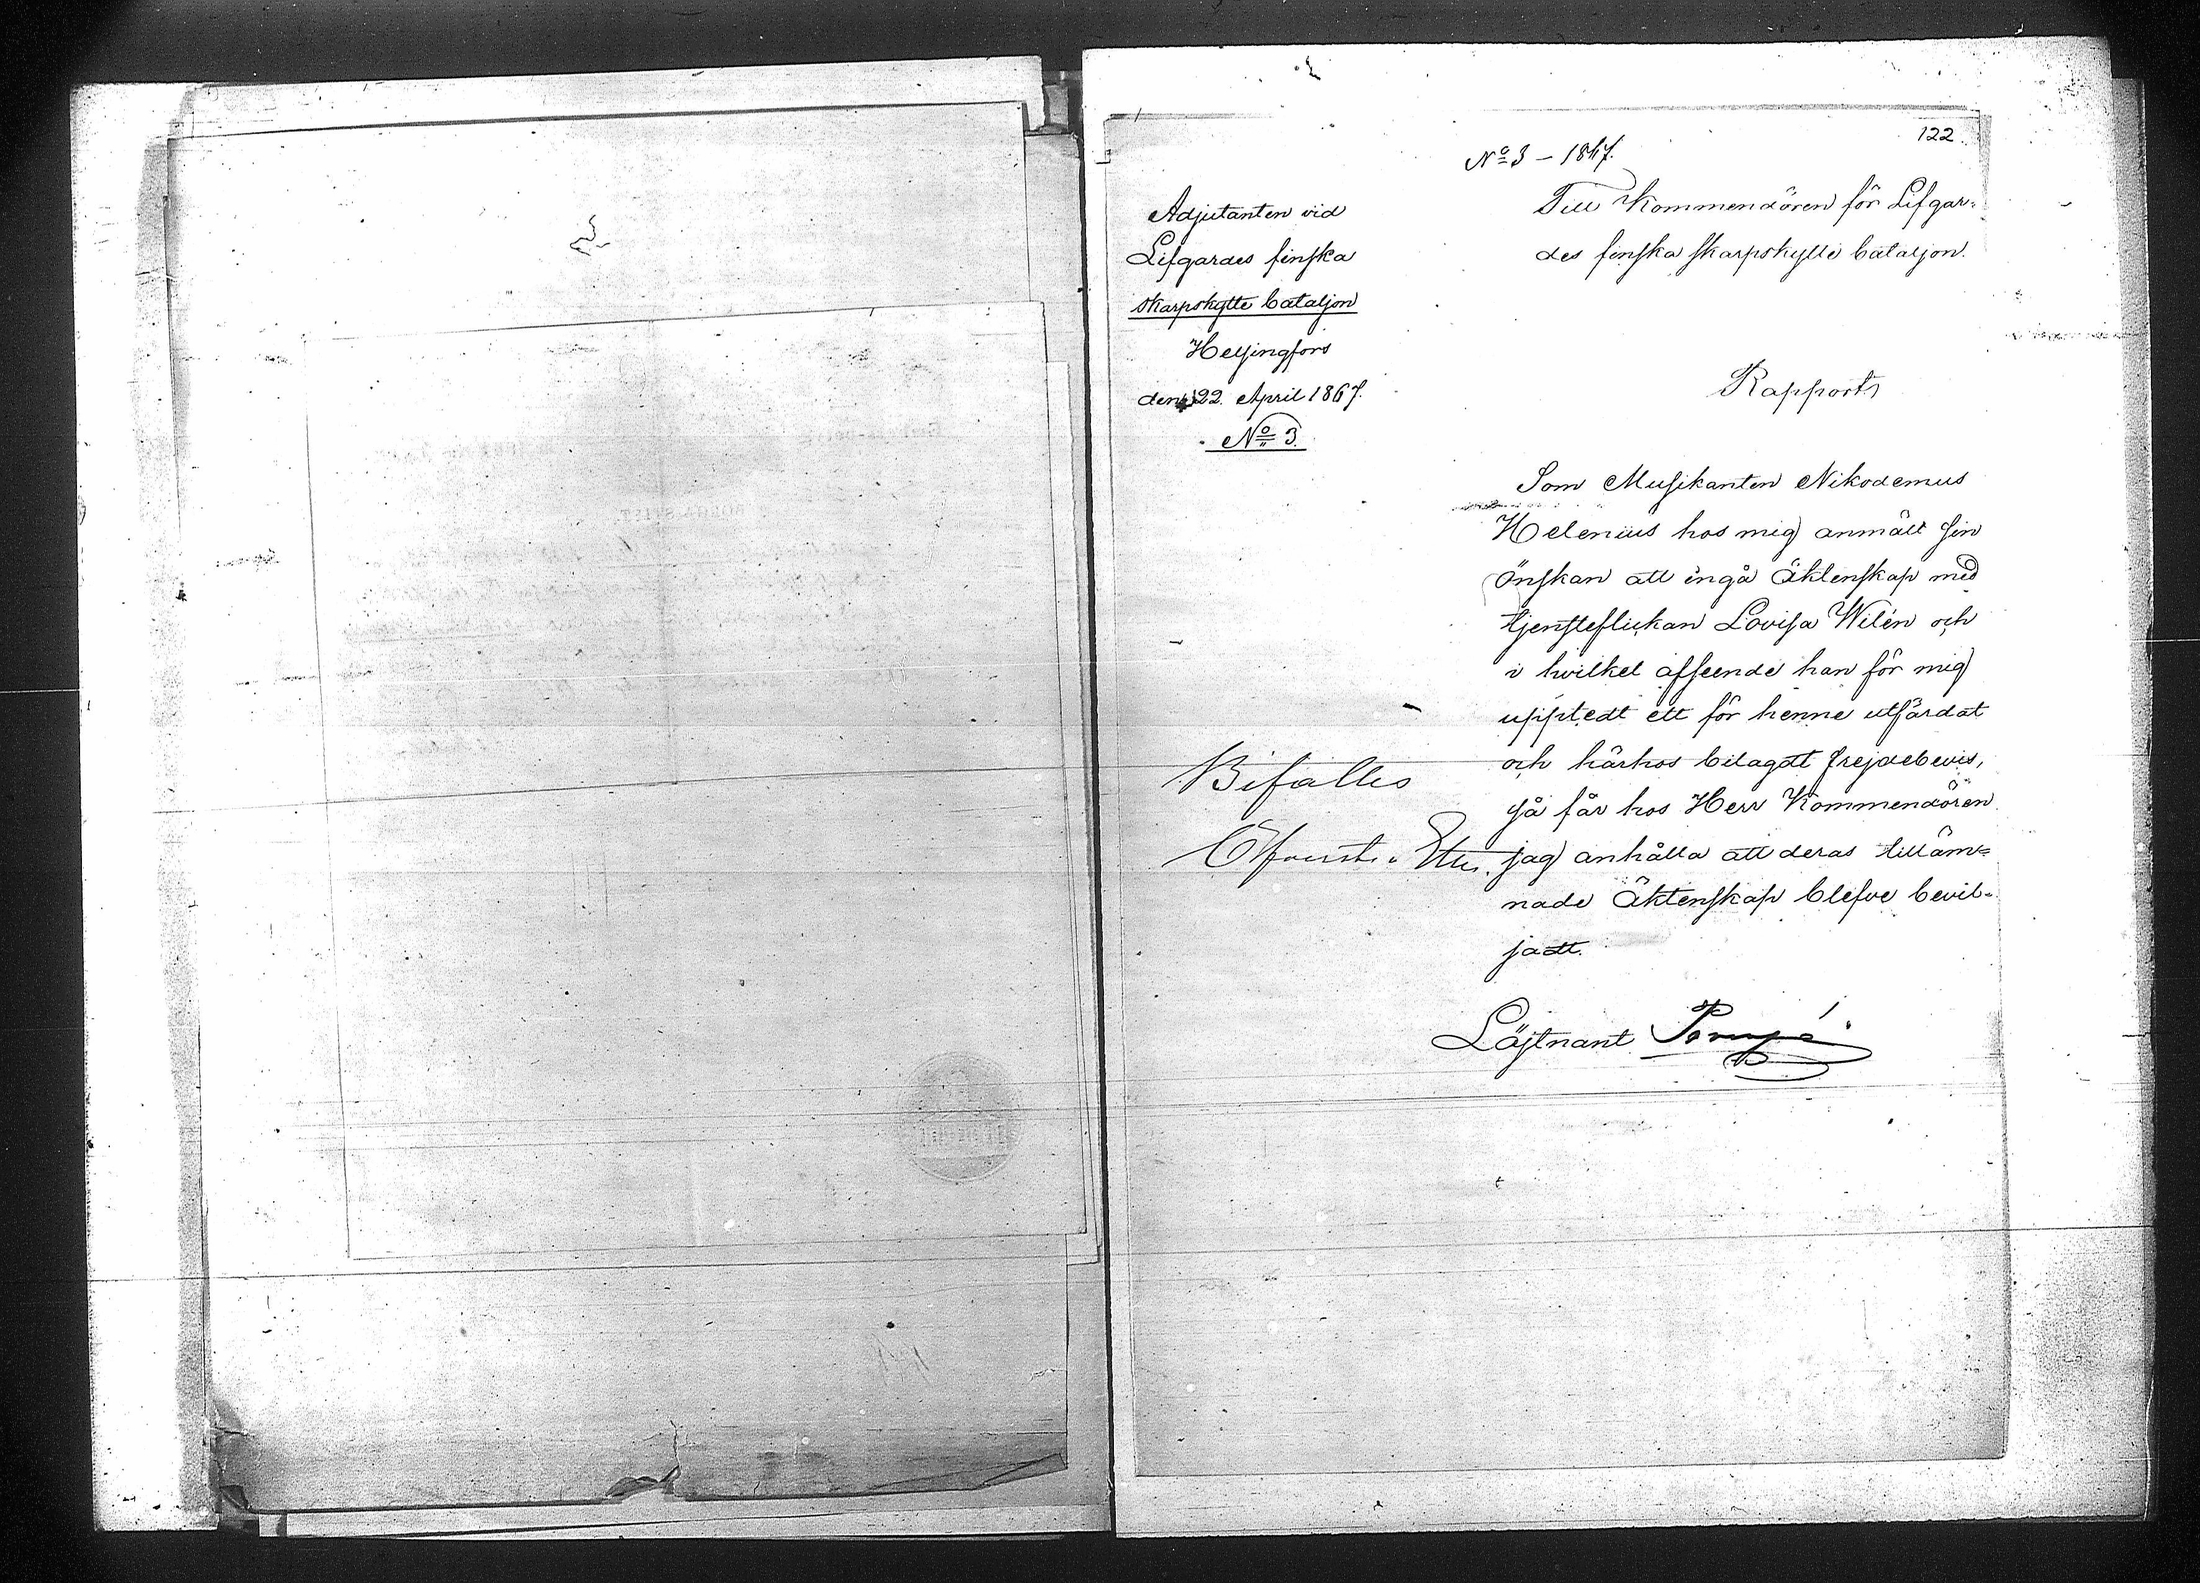 122
Nº 3 – 1867.
Adjutanten vid
Lifgardes finska
skarpskytte bataljon
Helsingfors
den 22. April 1867.
Nº 3.
Till Kommendören för Lifgar-
des finska skarpskytte bataljon.
Rapport
Som Musikanten Nikodemus
Helenius hos mig anmält sin
önskan att ingå Äktenskap med
tjensteflickan Lovisa Wilén och
i hvilket afseende han för mig
upptedt ett för henne utfärdat
och härhos bilagdt frejdebevis,
så får hos Herr Kommendören
jag anhålla att deras tilläm-
nade Äktenskap blefve bevil-
jadt.
Bifalles
Löjtnant